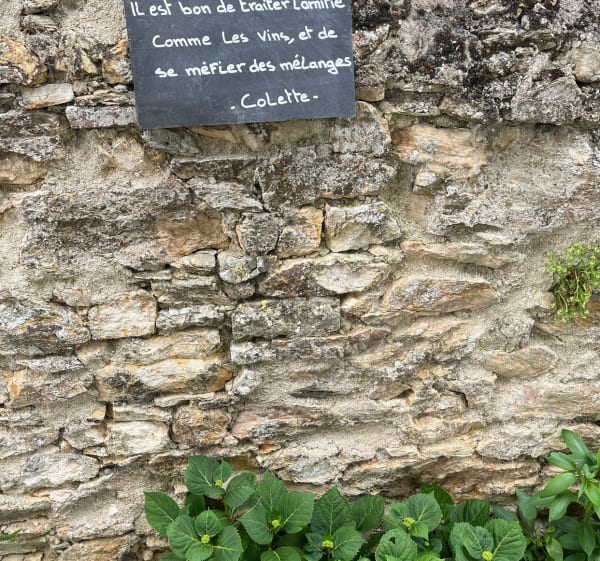 IL est bon de traiter L'amitié
Comme Les vins, et de
se méfier des mélanges
- CoLette -